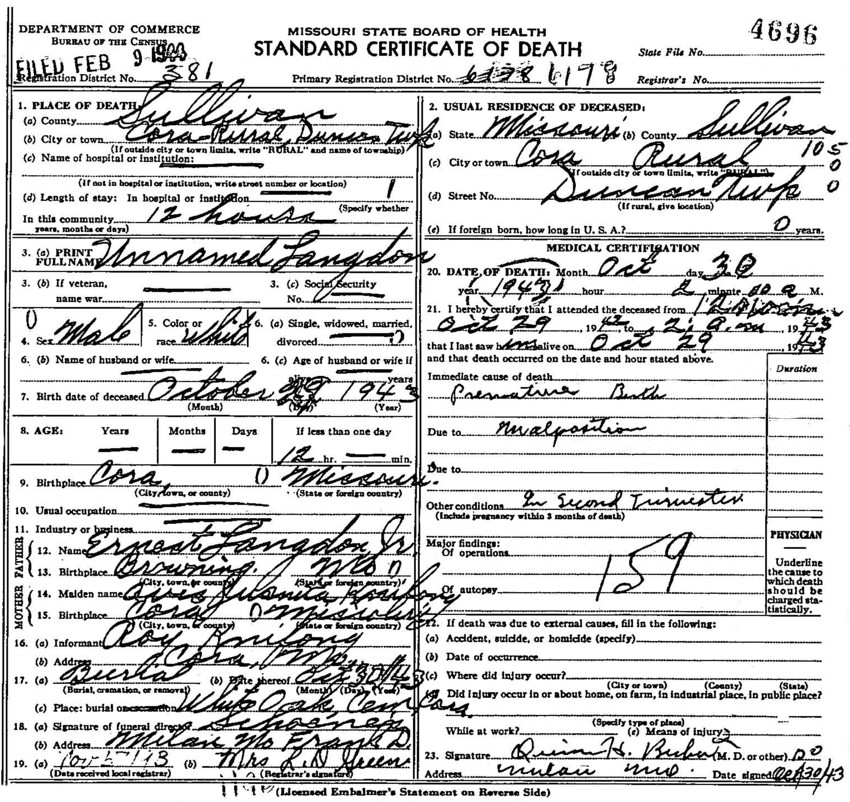 DEPARTMENT OF COMMERCE
BUREAU OF THE CENSUS
FILED FEB 9 1944
MISSOURI STATE BOARD OF HEALTH
STANDARD CERTIFICATE OF DEATH
4696
State File No.
Registration District No. 381
Primary Registration District No. 6178
Registrar's No.
1. PLACE OF DEATH:
(a) County Sullivan
(b) City or town Cora-Rural, Duncan Twp
(If outside city or town limits, write "RURAL" and name of township)
(c) Name of hospital or institution:
(If not in hospital or institution, write street number or location)
(d) Length of stay: In hospital or institution
(Specify whether
In this community 12 hours
years, months or days)
3. (a) PRINT FULL NAME Unnamed Langdon
3. (b) If veteran, name war
3. (c) Social Security No.
4. Sex Male
5. Color or race White
6. (a) Single, widowed, married, divorced
6. (b) Name of husband or wife
6. (c) Age of husband or wife if alive years
7. Birth date of deceased October 29 1943
(Month) (Day) (Year)
8. AGE: Years Months Days If less than one day
12 hr. min.
9. Birthplace Cora, Missouri
(City, town, or county) (State or foreign country)
10. Usual occupation
11. Industry or business
FATHER
12. Name Ernest Langdon Jr.
13. Birthplace Browning Mo
(City, town, or county) (State or foreign country)
MOTHER
14. Maiden name Juanita
15. Birthplace Cora Missouri
(City, town, or county) (State or foreign country)
16. (a) Informant Roy Knifong
(b) Address Cora, Mo.
17. (a) Burial (b) Date thereof Oct 30 1943
(Burial, cremation, or removal) (Month) (Day) (Year)
(c) Place: burial or cremation White Oak Cem Cora
18. (a) Signature of funeral director Schoene
(b) Address Milan Mo
19. (a) (b) Mrs Green
(Date received local registrar) (Registrar's signature)
2. USUAL RESIDENCE OF DECEASED:
(a) State Missouri (b) County Sullivan
105
(c) City or town Cora Rural
0
(If outside city or town limits, write "RURAL")
(d) Street No. Duncan Twp
0
(If rural, give location)
(e) If foreign born, how long in U. S. A.? 0 years.
MEDICAL CERTIFICATION
20. DATE OF DEATH: Month Oct day 30
year 1943 hour 2 minute 00 a M.
21. I hereby certify that I attended the deceased from
Oct 29 19 to 2 a.m 1943
that I last saw him alive on Oct 29 1943
and that death occurred on the date and hour stated above.
Duration
Immediate cause of death
Premature Birth
Due to malposition
Due to
Other conditions In Second Trimester
(Include pregnancy within 3 months of death)
Major findings:
Of operations
159
Of autopsy
PHYSICIAN
Underline the cause to which death should be charged statistically.
22. If death was due to external causes, fill in the following:
(a) Accident, suicide, or homicide (specify)
(b) Date of occurrence
(c) Where did injury occur?
(City or town) (County) (State)
(d) Did injury occur in or about home, on farm, in industrial place, in public place?
(Specify type of place)
While at work? (e) Means of injury
23. Signature Quinn H. (M. D. or other) DO
Address Milan Mo. Date signed Oct/30/43
(Licensed Embalmer's Statement on Reverse Side)